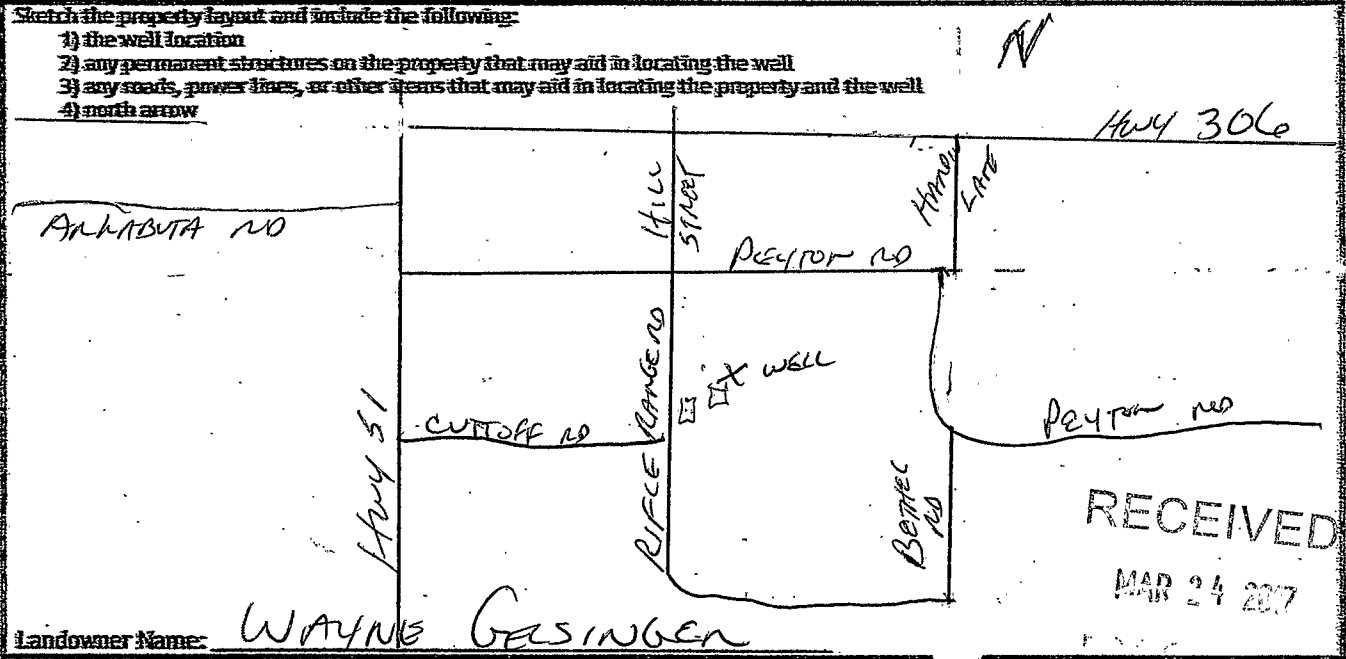 Sketch the property layout and include the following:
1) the well location
2) any permanent structures on the property that may aid in locating the well
3) any roads, power lines, or other items that may aid in locating the property and the well
4) north arrow
N
HWY 306
ARKABUTA RD
HILL
STREET
LANE
PEYTON RD
HWY 51
CUTTOFF RD
RIFLE RANGE RD
X WELL
BETHEL
RD
PEYTON RD
RECEIVED
MAR 24
Landowner Name: WAYNE GELSINGER